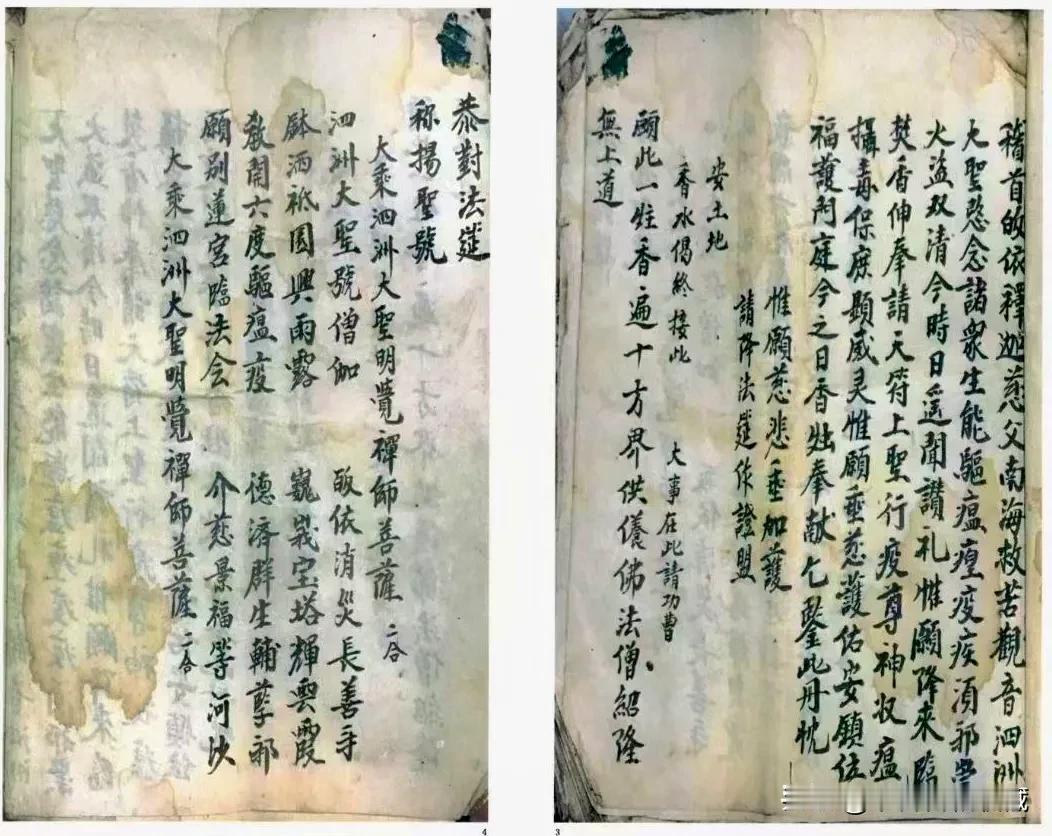 稽首皈依釋迦慈父南海救苦觀音泗洲
大聖愍念諸衆生能驅瘟瘟疫疾消邪
火盜双清今時日遥聞讃礼惟願降来臨
焚香伸奉請天符上聖行疫尊神收瘟
攝毒保庶顕威灵惟願垂慈護佑安鎮位
福護門庭今之日香炷奉献乞鑒此丹忱
惟願慈悲垂加護
請降法筵作證盟
安土地
香水偈終接此
大事在此請功曹
願此一炷香遍十方界供儀佛法僧紹隆
無上道
恭對法筵
称揚聖號
大乘泗洲大聖明覺禪師菩薩 二合
泗洲大聖號僧伽 皈依消災長善牙
鉢洒祗園興雨露 巍峩宝塔輝雲霞
教開六度驅瘟疫 德済群生輔孽邪
願別蓮宫臨法会 介慈景福等河沙
大乘泗洲大聖明覺禪師菩薩 二合
4
3